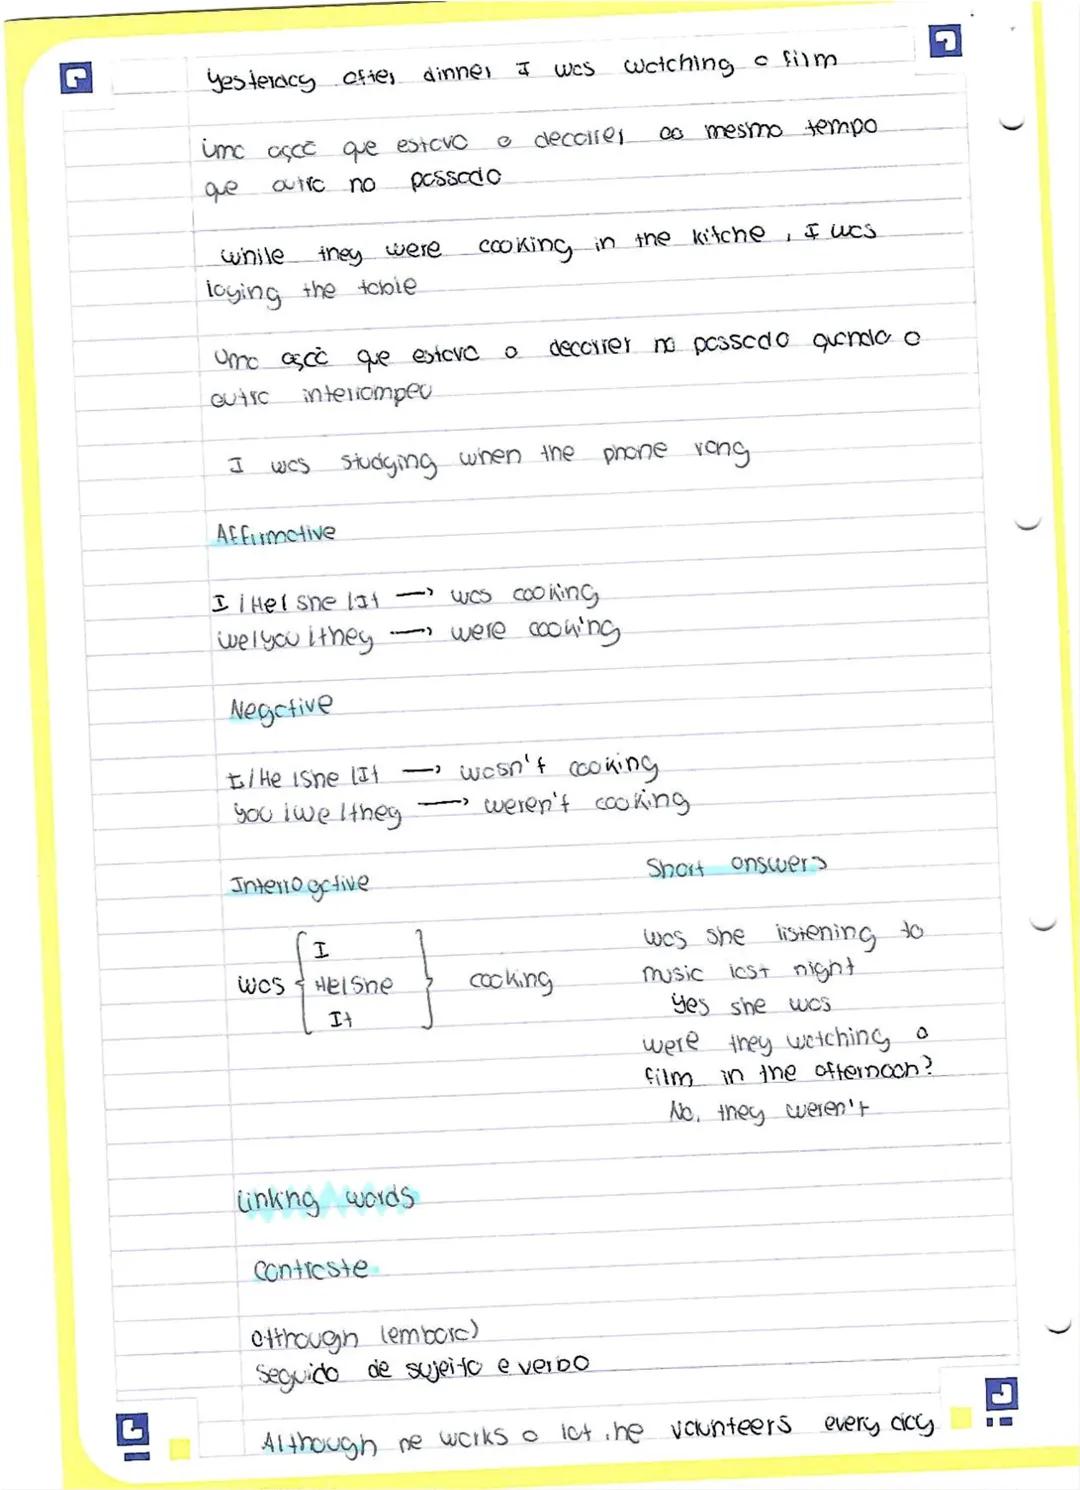 Yesteracy after dinner I was watching a film
Uma ação que estava a decorrer ao mesmo tempo
que outra no passado
While they were cooking in the kitche, I was
laying the table
Uma ação que estava a decorrer no passado quando a
outra interrompeu
I was studying when the phone rang
Affirmative
I / He / She / It → was cooking
We / you / they → were cooking
Negative
I / He / She / It → wasn't cooking
You / we / they → weren't cooking
Interrogative
Was { I
He / She
It } cooking
Short answers
Was she listening to
music last night
Yes she was
Were they watching a
film in the afternoon?
No, they weren't
Linking words
Contraste
Although (embora)
Seguido de sujeito e verbo
Although he works a lot, he volunteers every day